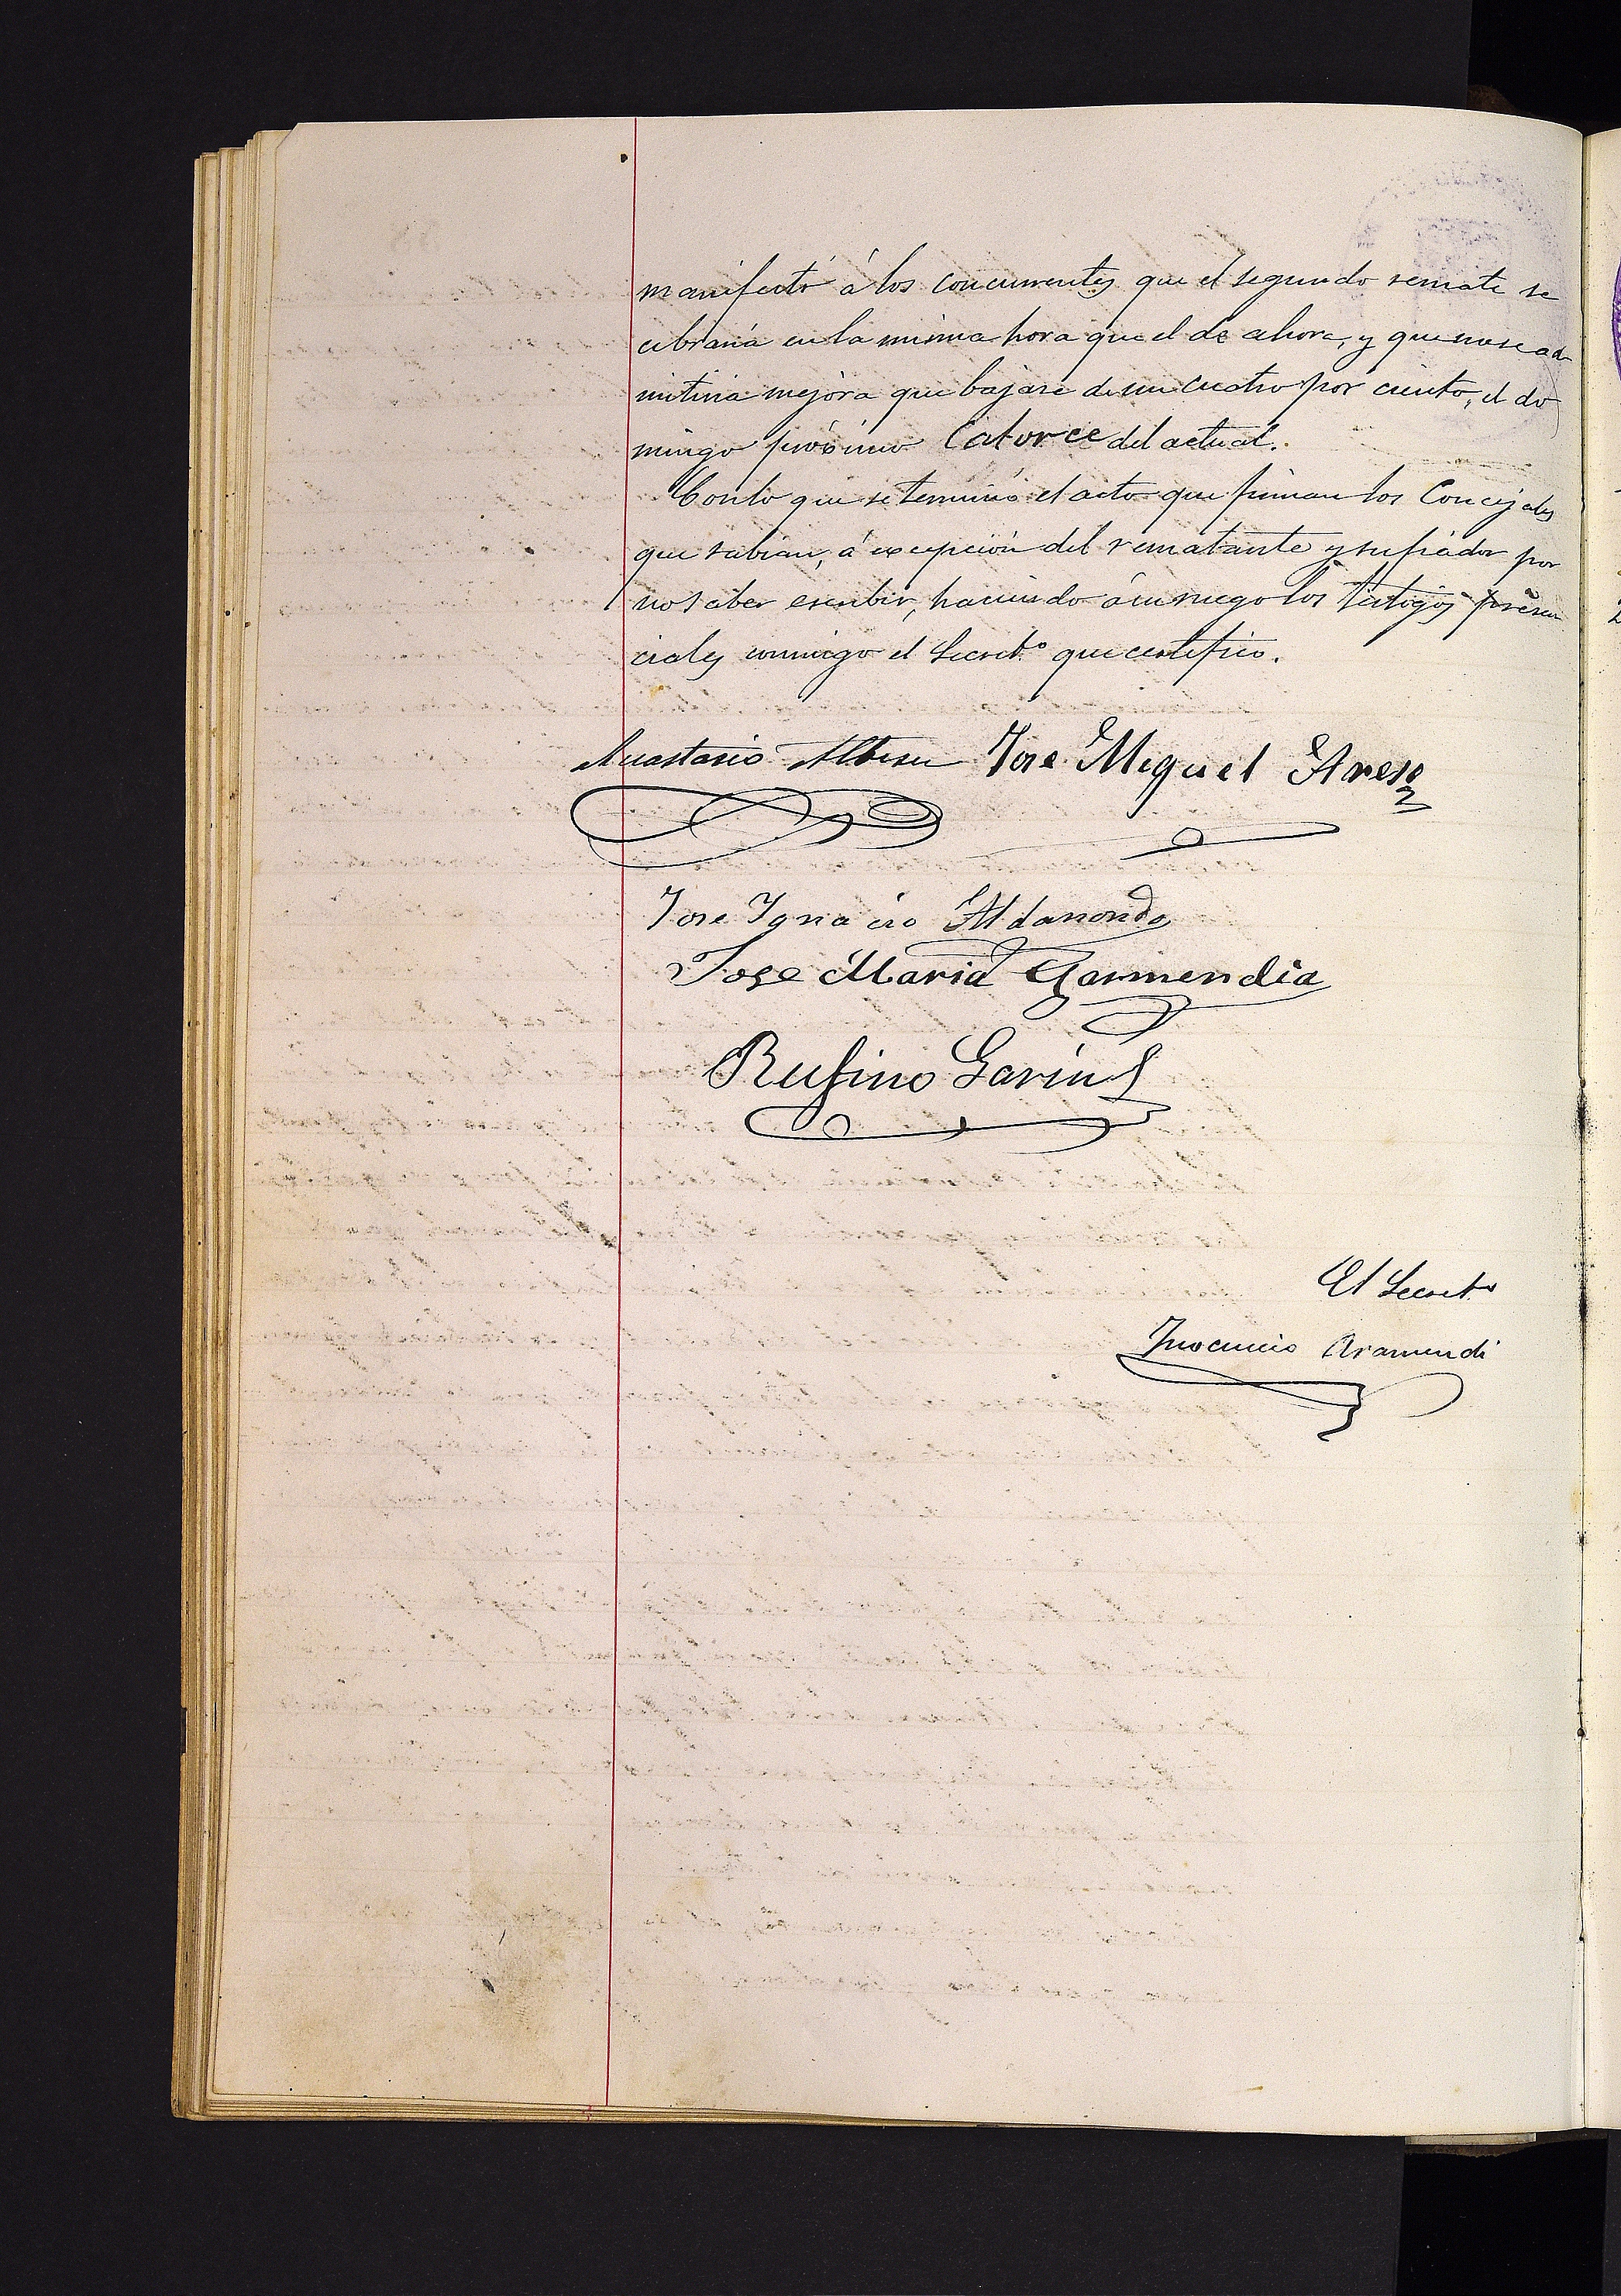 manifestó á los concurrentes que el segundo remate se
cebraria en la misma hora que el de ahora, y que no se ad
mitiria mejora que bajase de un cuatro por ciento, el do
mingo próximo Catorce del actual.
Con lo que se terminó el acto que firman los Concejales
que sabian, á excepción del rematante y su fiador por
no saber escribir, haciendo á su ruego los testigos presen
ciales conmigo el Secret.º que certifico.
Anastasio Albisu Jose Miguel Areso
Jose Ignacio Aldanondo
Jose Maria Garmendia
Rufino Garin
El Secret.º
Inocencio Aramendi